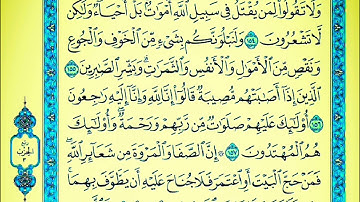 وَلَا تَقُولُوا۟ لِمَن يُقْتَلُ فِى سَبِيلِ ٱللَّهِ أَمْوَٰتٌۢ بَلْ أَحْيَآءٌ وَلَٰكِن
لَّا تَشْعُرُونَ ١٥٤ وَلَنَبْلُوَنَّكُم بِشَىْءٍ مِّنَ ٱلْخَوْفِ وَٱلْجُوعِ
وَنَقْصٍ مِّنَ ٱلْأَمْوَٰلِ وَٱلْأَنفُسِ وَٱلثَّمَرَٰتِ ۗ وَبَشِّرِ ٱلصَّٰبِرِينَ ١٥٥
ٱلَّذِينَ إِذَآ أَصَٰبَتْهُم مُّصِيبَةٌ قَالُوٓا۟ إِنَّا لِلَّهِ وَإِنَّآ إِلَيْهِ رَٰجِعُونَ
١٥٦ أُو۟لَٰٓئِكَ عَلَيْهِمْ صَلَوَٰتٌ مِّن رَّبِّهِمْ وَرَحْمَةٌ ۖ وَأُو۟لَٰٓئِكَ
هُمُ ٱلْمُهْتَدُونَ ١٥٧ ۞ إِنَّ ٱلصَّفَا وَٱلْمَرْوَةَ مِن شَعَآئِرِ ٱللَّهِ ۖ
فَمَنْ حَجَّ ٱلْبَيْتَ أَوِ ٱعْتَمَرَ فَلَا جُنَاحَ عَلَيْهِ أَن يَطَّوَّفَ بِهِمَا ۚ